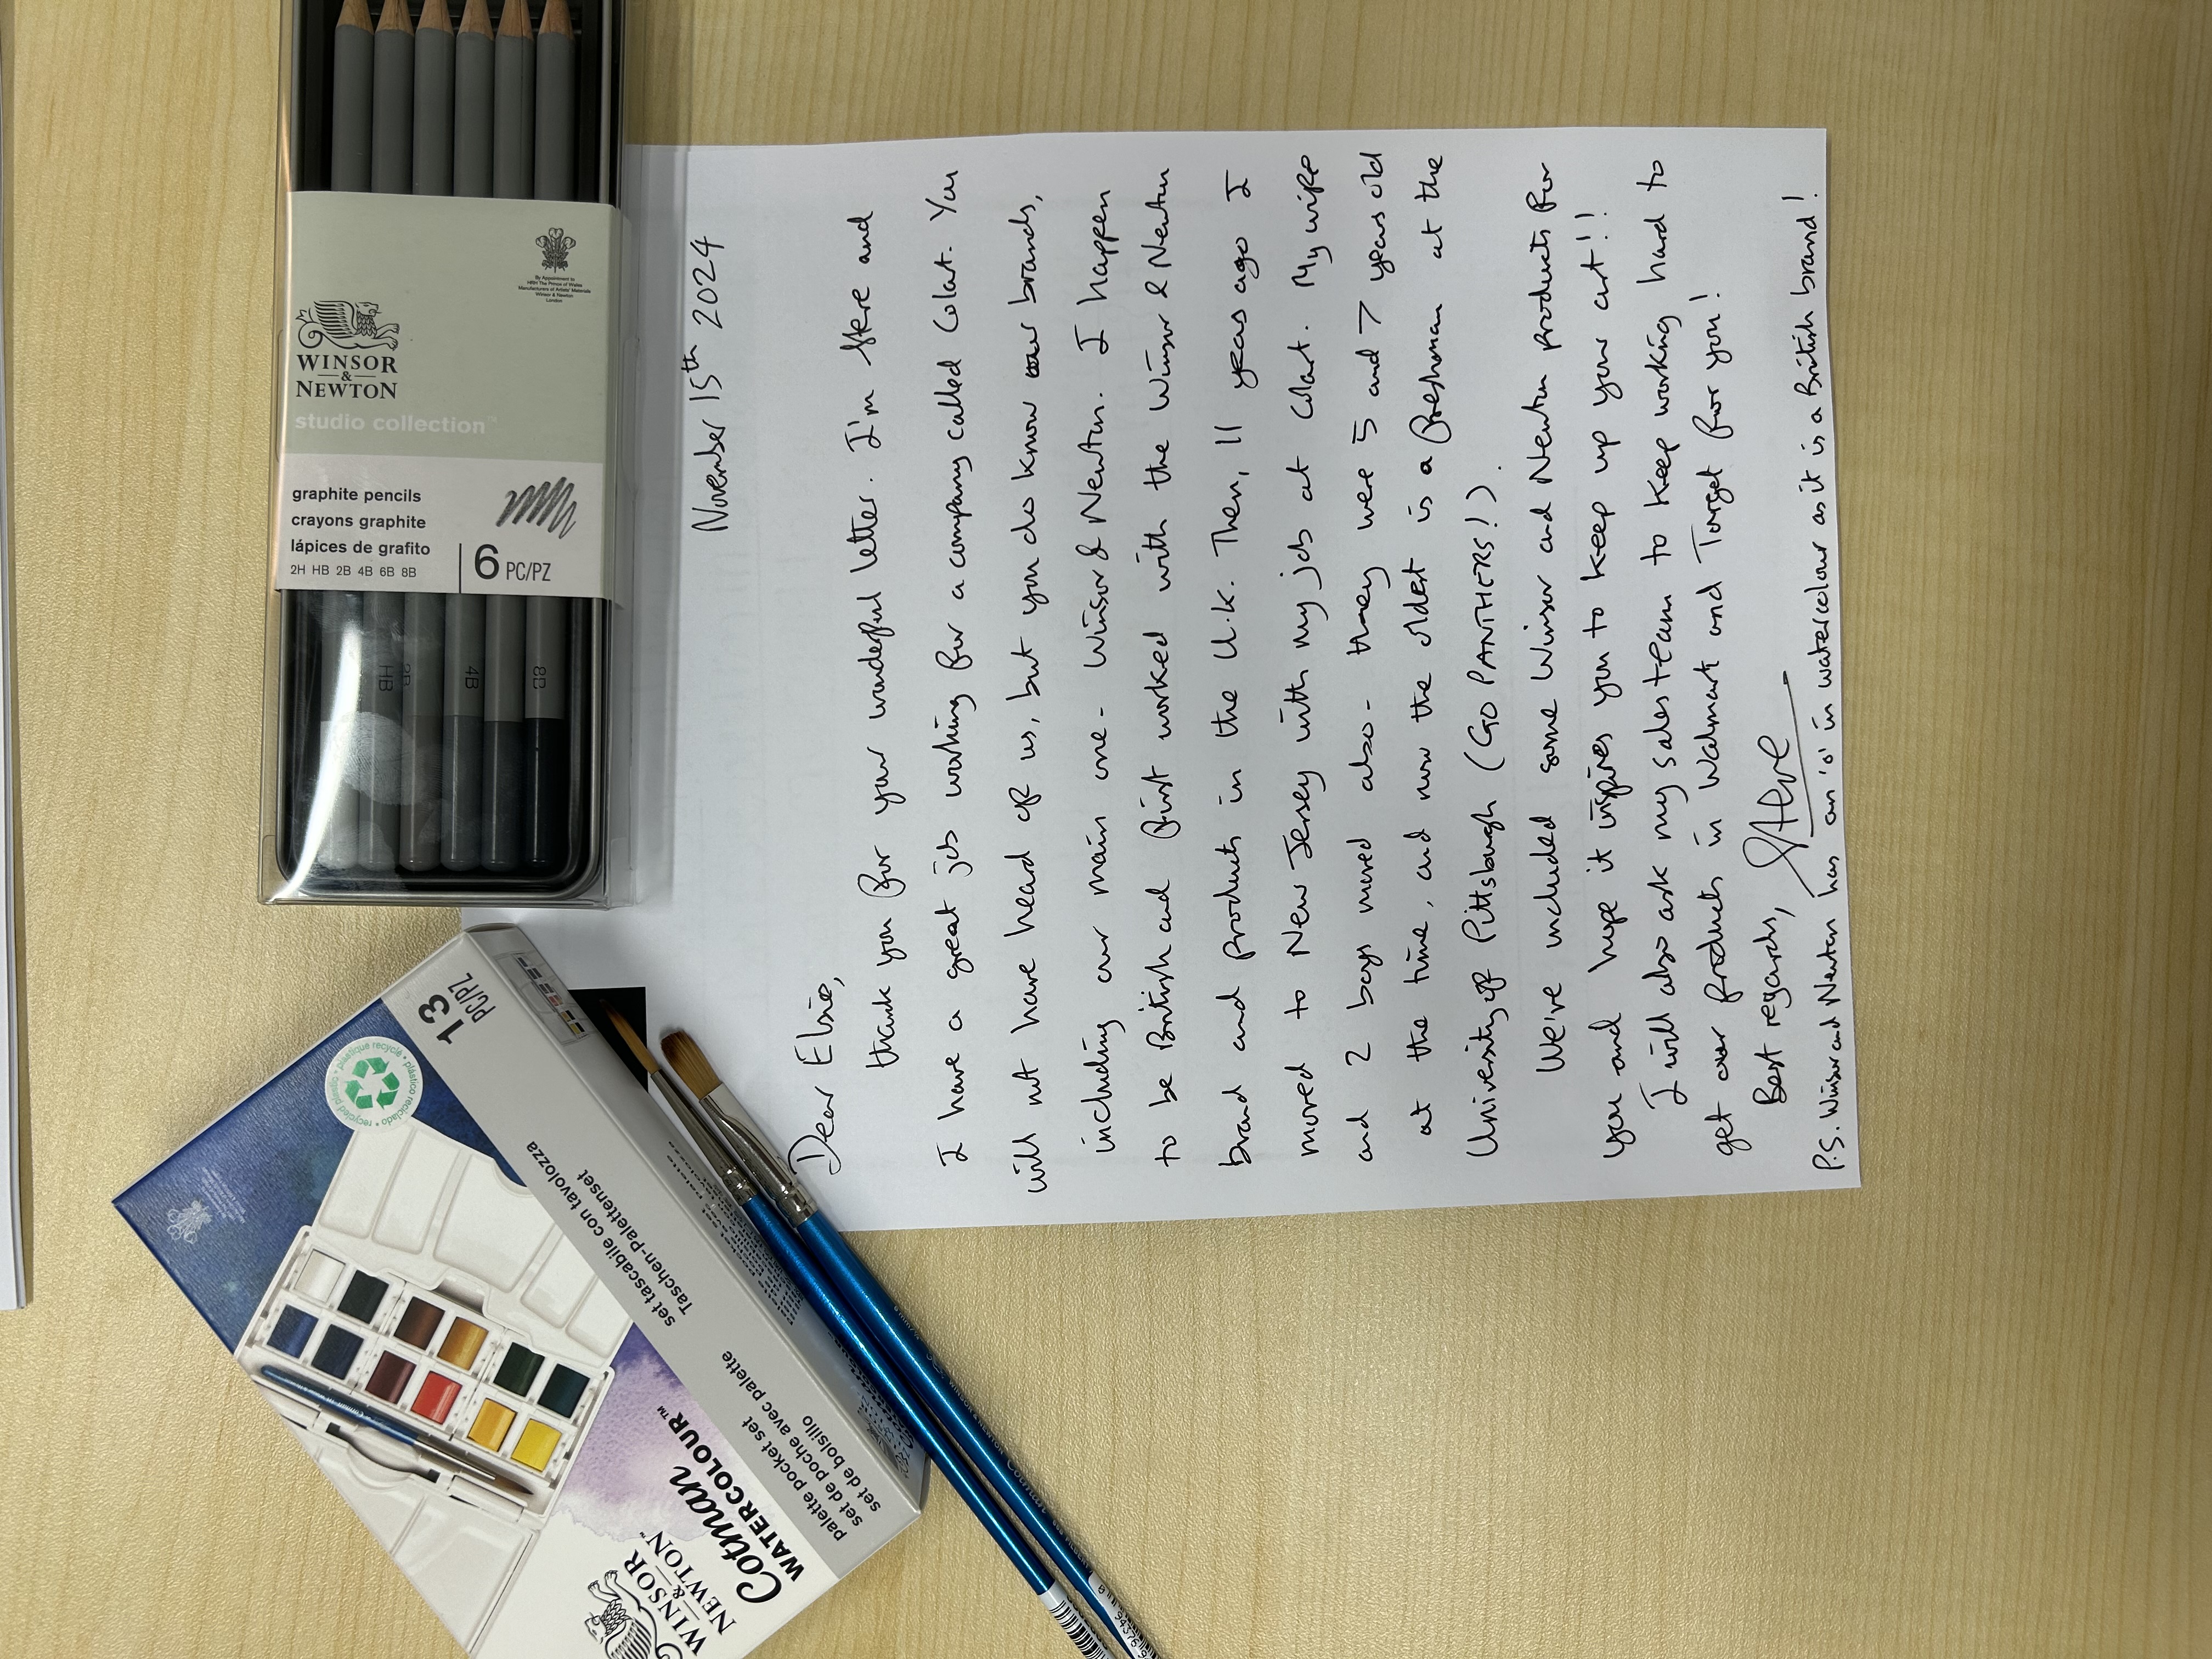 WINSOR
&
NEWTON
studio collection™
By Appointment to
HRH The Prince of Wales
Manufacturers of Artists' Materials
Winsor & Newton
London
graphite pencils
crayons graphite
lápices de grafito
2H HB 2B 4B 6B 8B
6 PC/PZ
HB
2B
4B
8B
November 15th 2024
Dear Elsie,
thank you for your wonderful letter. I'm Steve and
I have a great job working for a company called Colart. You
will not have heard of us, but you do know our brands,
including our main one - Winsor & Newton. I happen
to be British and first worked with the Winsor & Newton
brand and products in the U.K. Then, 11 years ago I
moved to New Jersey with my job at Colart. My wife
and 2 boys moved also - they were 5 and 7 years old
at the time, and now the oldest is a freshman at the
University of Pittsburgh (GO PANTHERS!).
We've included some Winsor and Newton products for
you and hope it inspires you to keep up your art!!
I will also ask my sales team to keep working hard to
get our products in Walmart and Target for you!
Best regards,
Steve
P.S. Winsor and Newton has an 'o' in watercolour as it is a British brand!
13
PC/PZ
plastique recyclé • plástico reciclado • recycled plastic
WINSOR
&
NEWTON™
Cotman
WATERCOLOUR™
palette pocket set
set de poche avec palette
set de bolsillo
set tascabile con tavolozza
Taschen-Palettenset
WINSOR & NEWTON Cotman